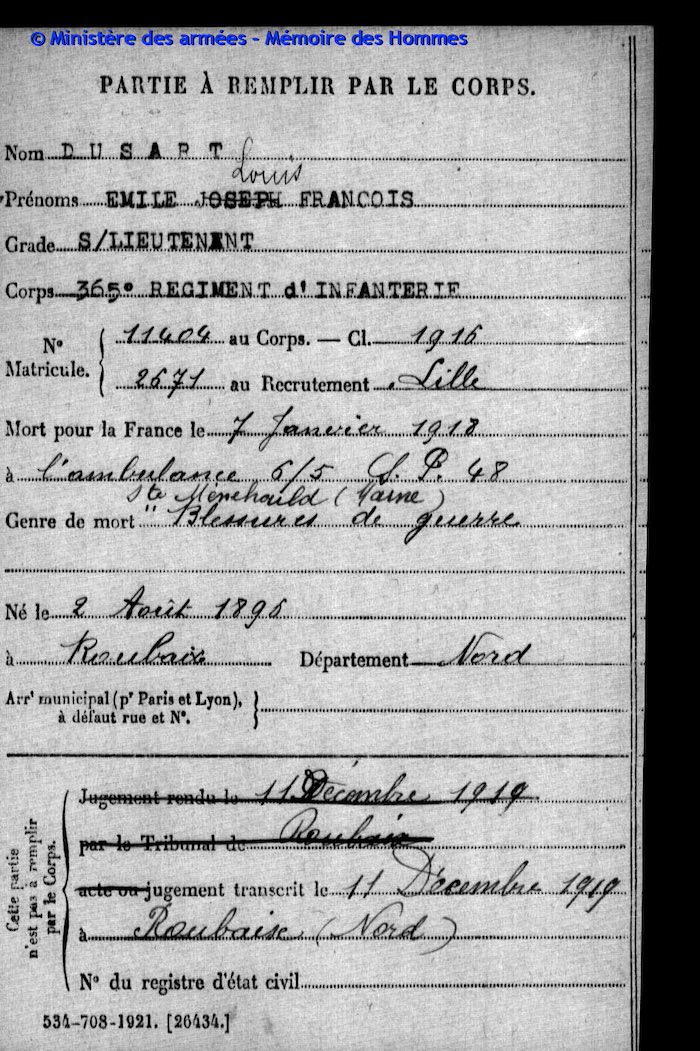 © Ministère des armées - Mémoire des Hommes
PARTIE À REMPLIR PAR LE CORPS.
Nom D U S A R T
Louis
Prénoms EMILE JOSEPH FRANCOIS
Grade S/LIEUTENANT
Corps 365e REGIMENT d'INFANTERIE
No Matricule. { 11404 au Corps. — Cl. 1916
2671 au Recrutement Lille
Mort pour la France le 7 Janvier 1918
à l'ambulance 6/5 S. P. 48
Ste Menehould (Marne)
Genre de mort " Blessures de guerre
Né le 2 Août 1896
à Roubaix Département Nord
Arrt municipal (pr Paris et Lyon), à défaut rue et No. }
Cette partie n'est pas à remplir par le Corps.
Jugement rendu le 11 Décembre 1919
par le Tribunal de Roubaix
acte ou jugement transcrit le 11 Décembre 1919
à Roubaix (Nord)
No du registre d'état civil
534-708-1921. [26434.]